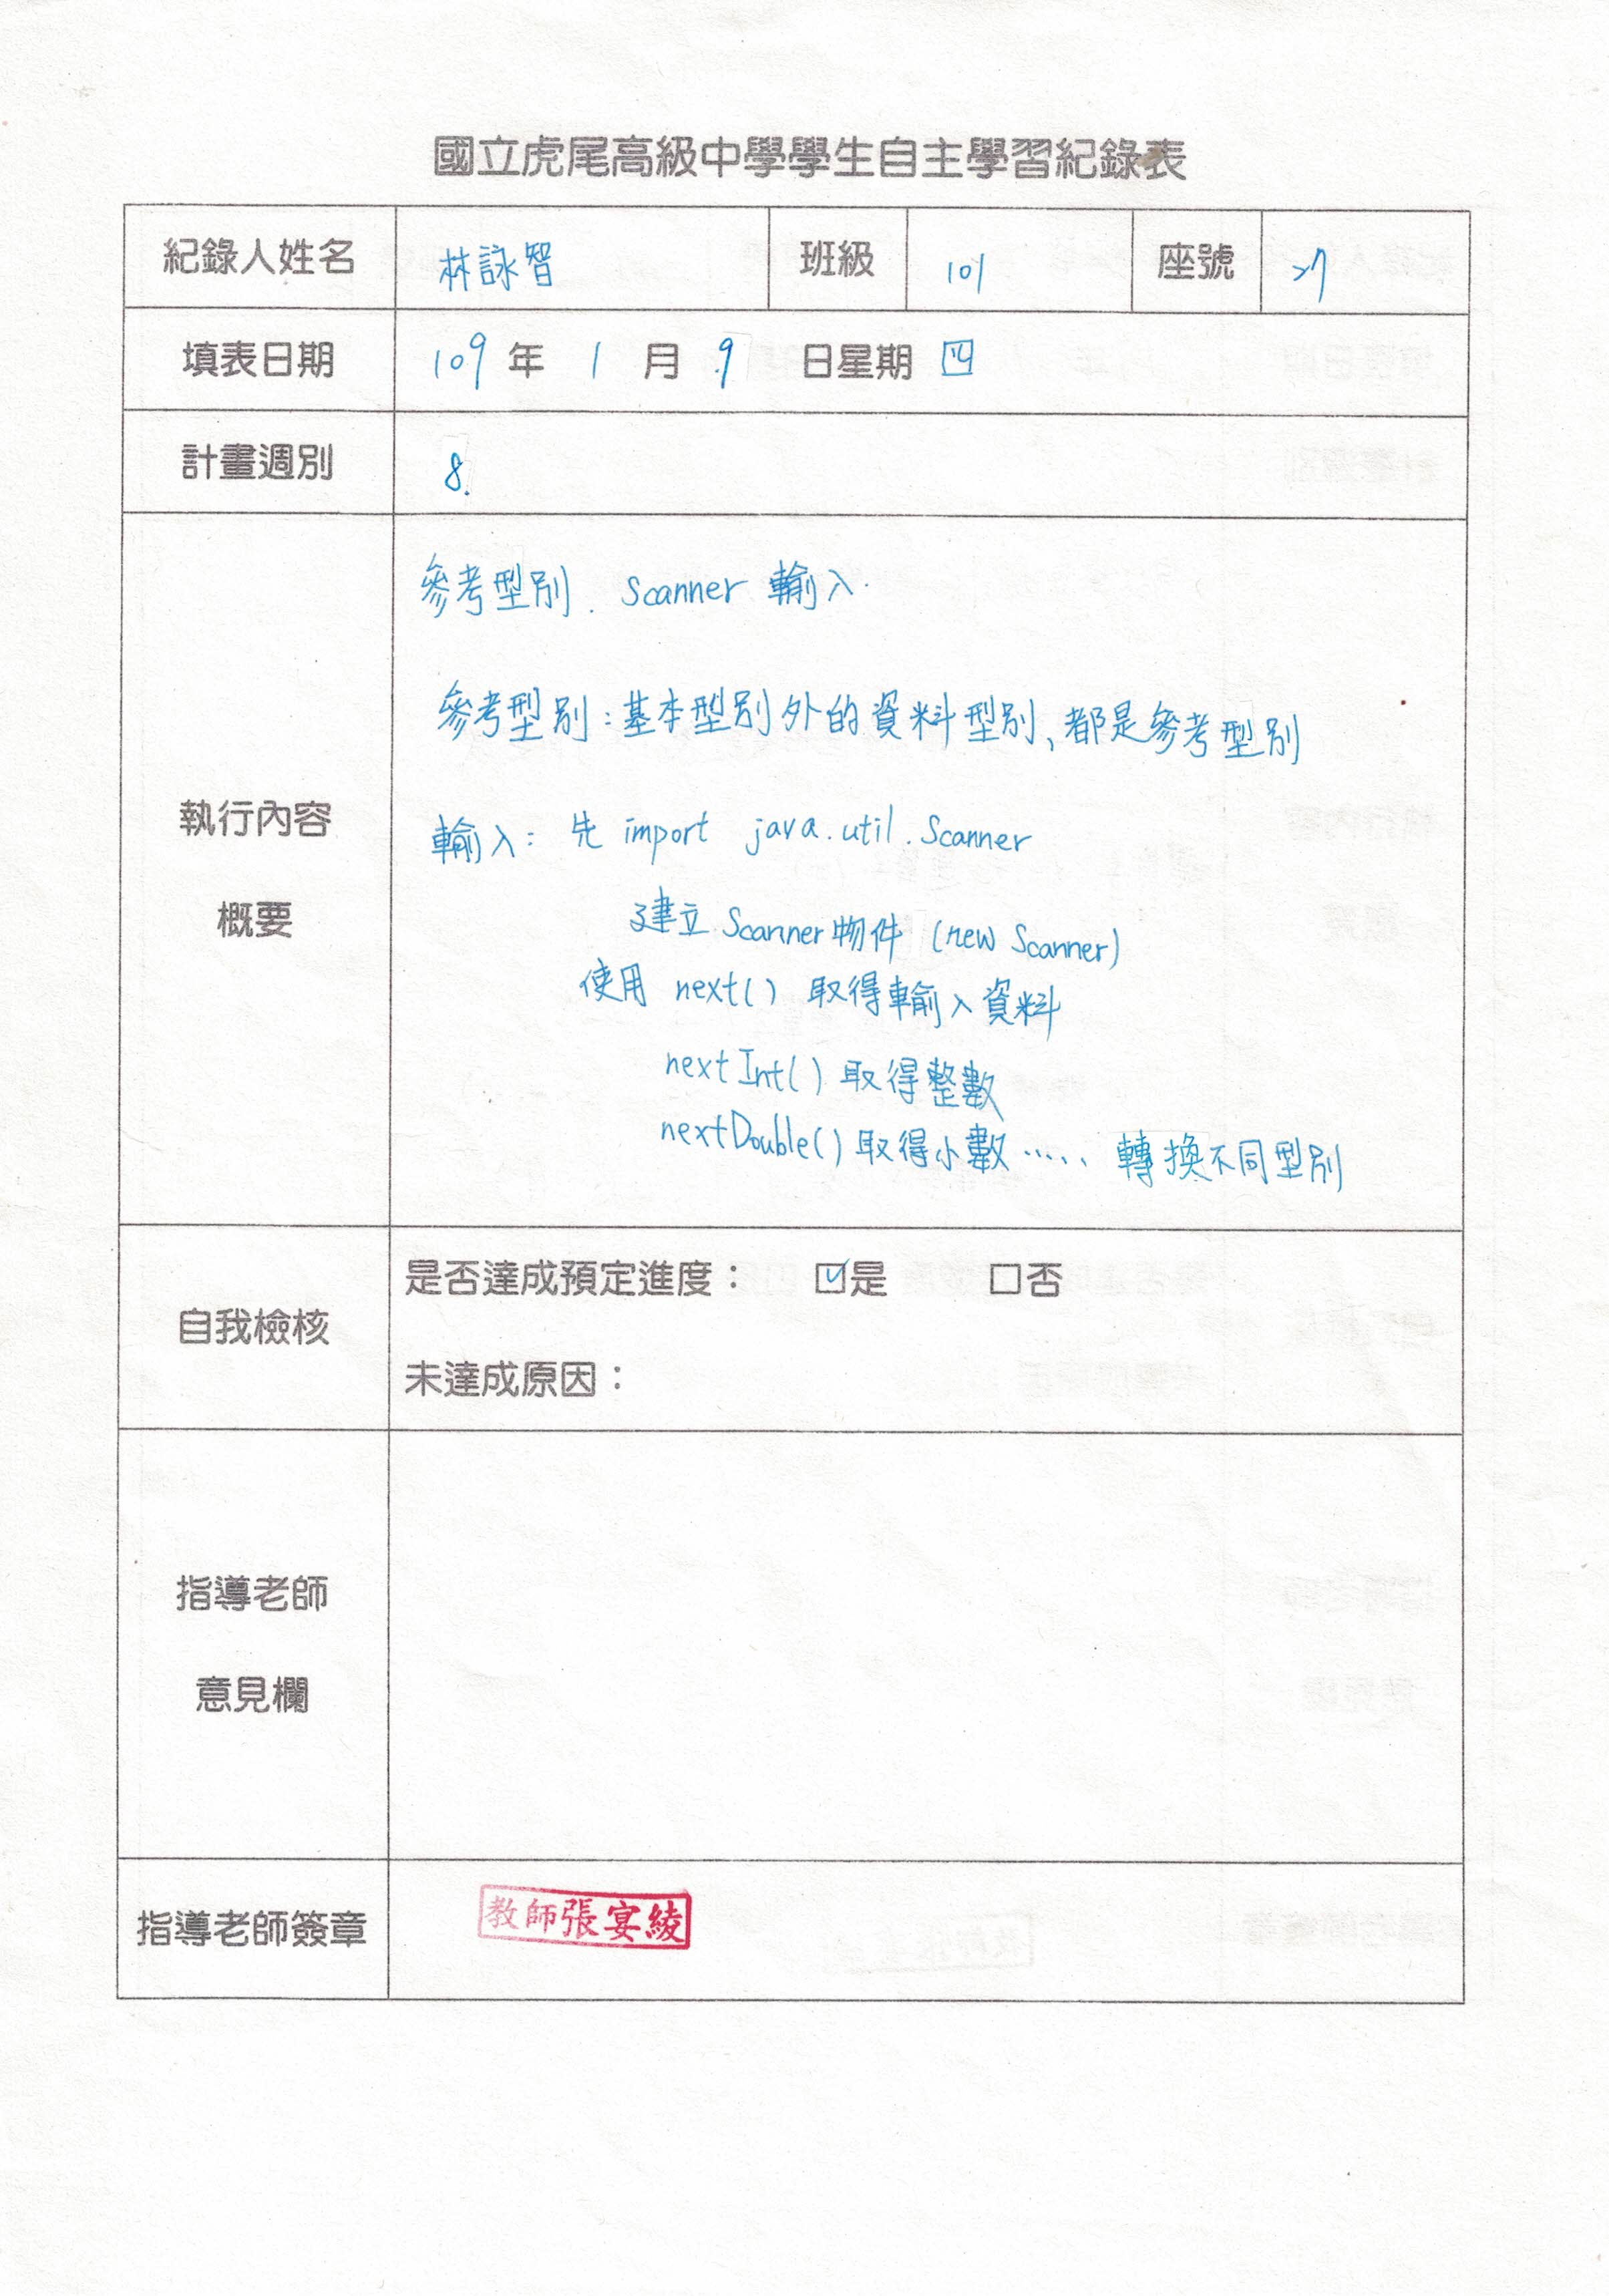 國立虎尾高級中學學生自主學習紀錄表
紀錄人姓名 林詠智 班級 101 座號 27
填表日期 109 年 1 月 9 日星期 四
計畫週別 8.
參考型別. Scanner 輸入.
參考型別：基本型別外的資料型別、都是參考型別
執行內容
概要
輸入： 先 import java.util.Scanner
建立 Scanner物件 (new Scanner)
使用 next() 取得輸入資料
nextInt() 取得整數
nextDouble() 取得小數 ..... 轉換不同型別
自我檢核
是否達成預定進度： ☑是 □否
未達成原因：
指導老師
意見欄
指導老師簽章 教師張宴綾